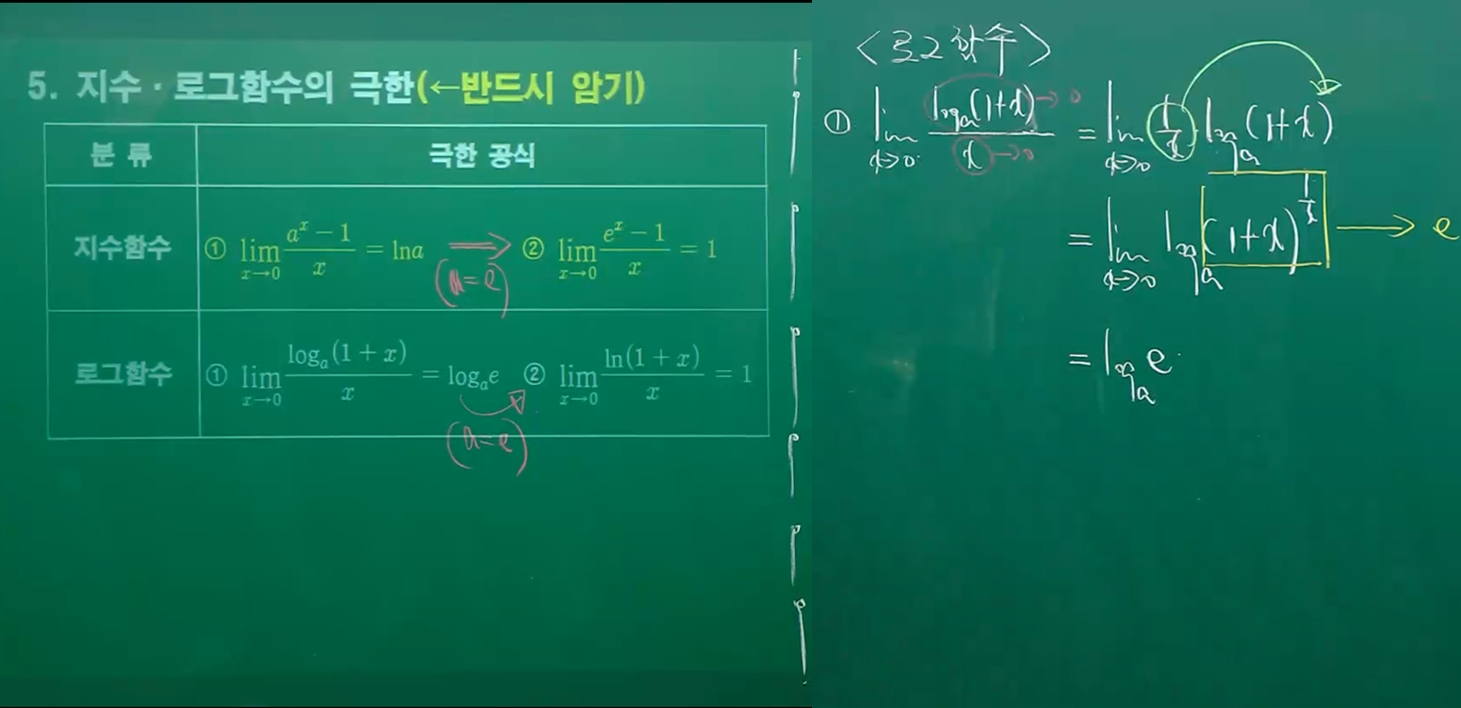 5. 지수·로그함수의 극한(←반드시 암기)
분류 극한 공식
지수함수 ① lim x→0 (aˣ − 1)/x = lna ⟹ ② lim x→0 (eˣ − 1)/x = 1
(a=e)
로그함수 ① lim x→0 logₐ(1 + x)/x = logₐe ② lim x→0 ln(1 + x)/x = 1
(a=e)
<로그함수>
① lim x→0 logₐ(1+x)→0 / x→0 = lim x→0 1/x logₐ(1+x)
= lim x→0 logₐ(1+x)^(1/x) → e
= logₐe